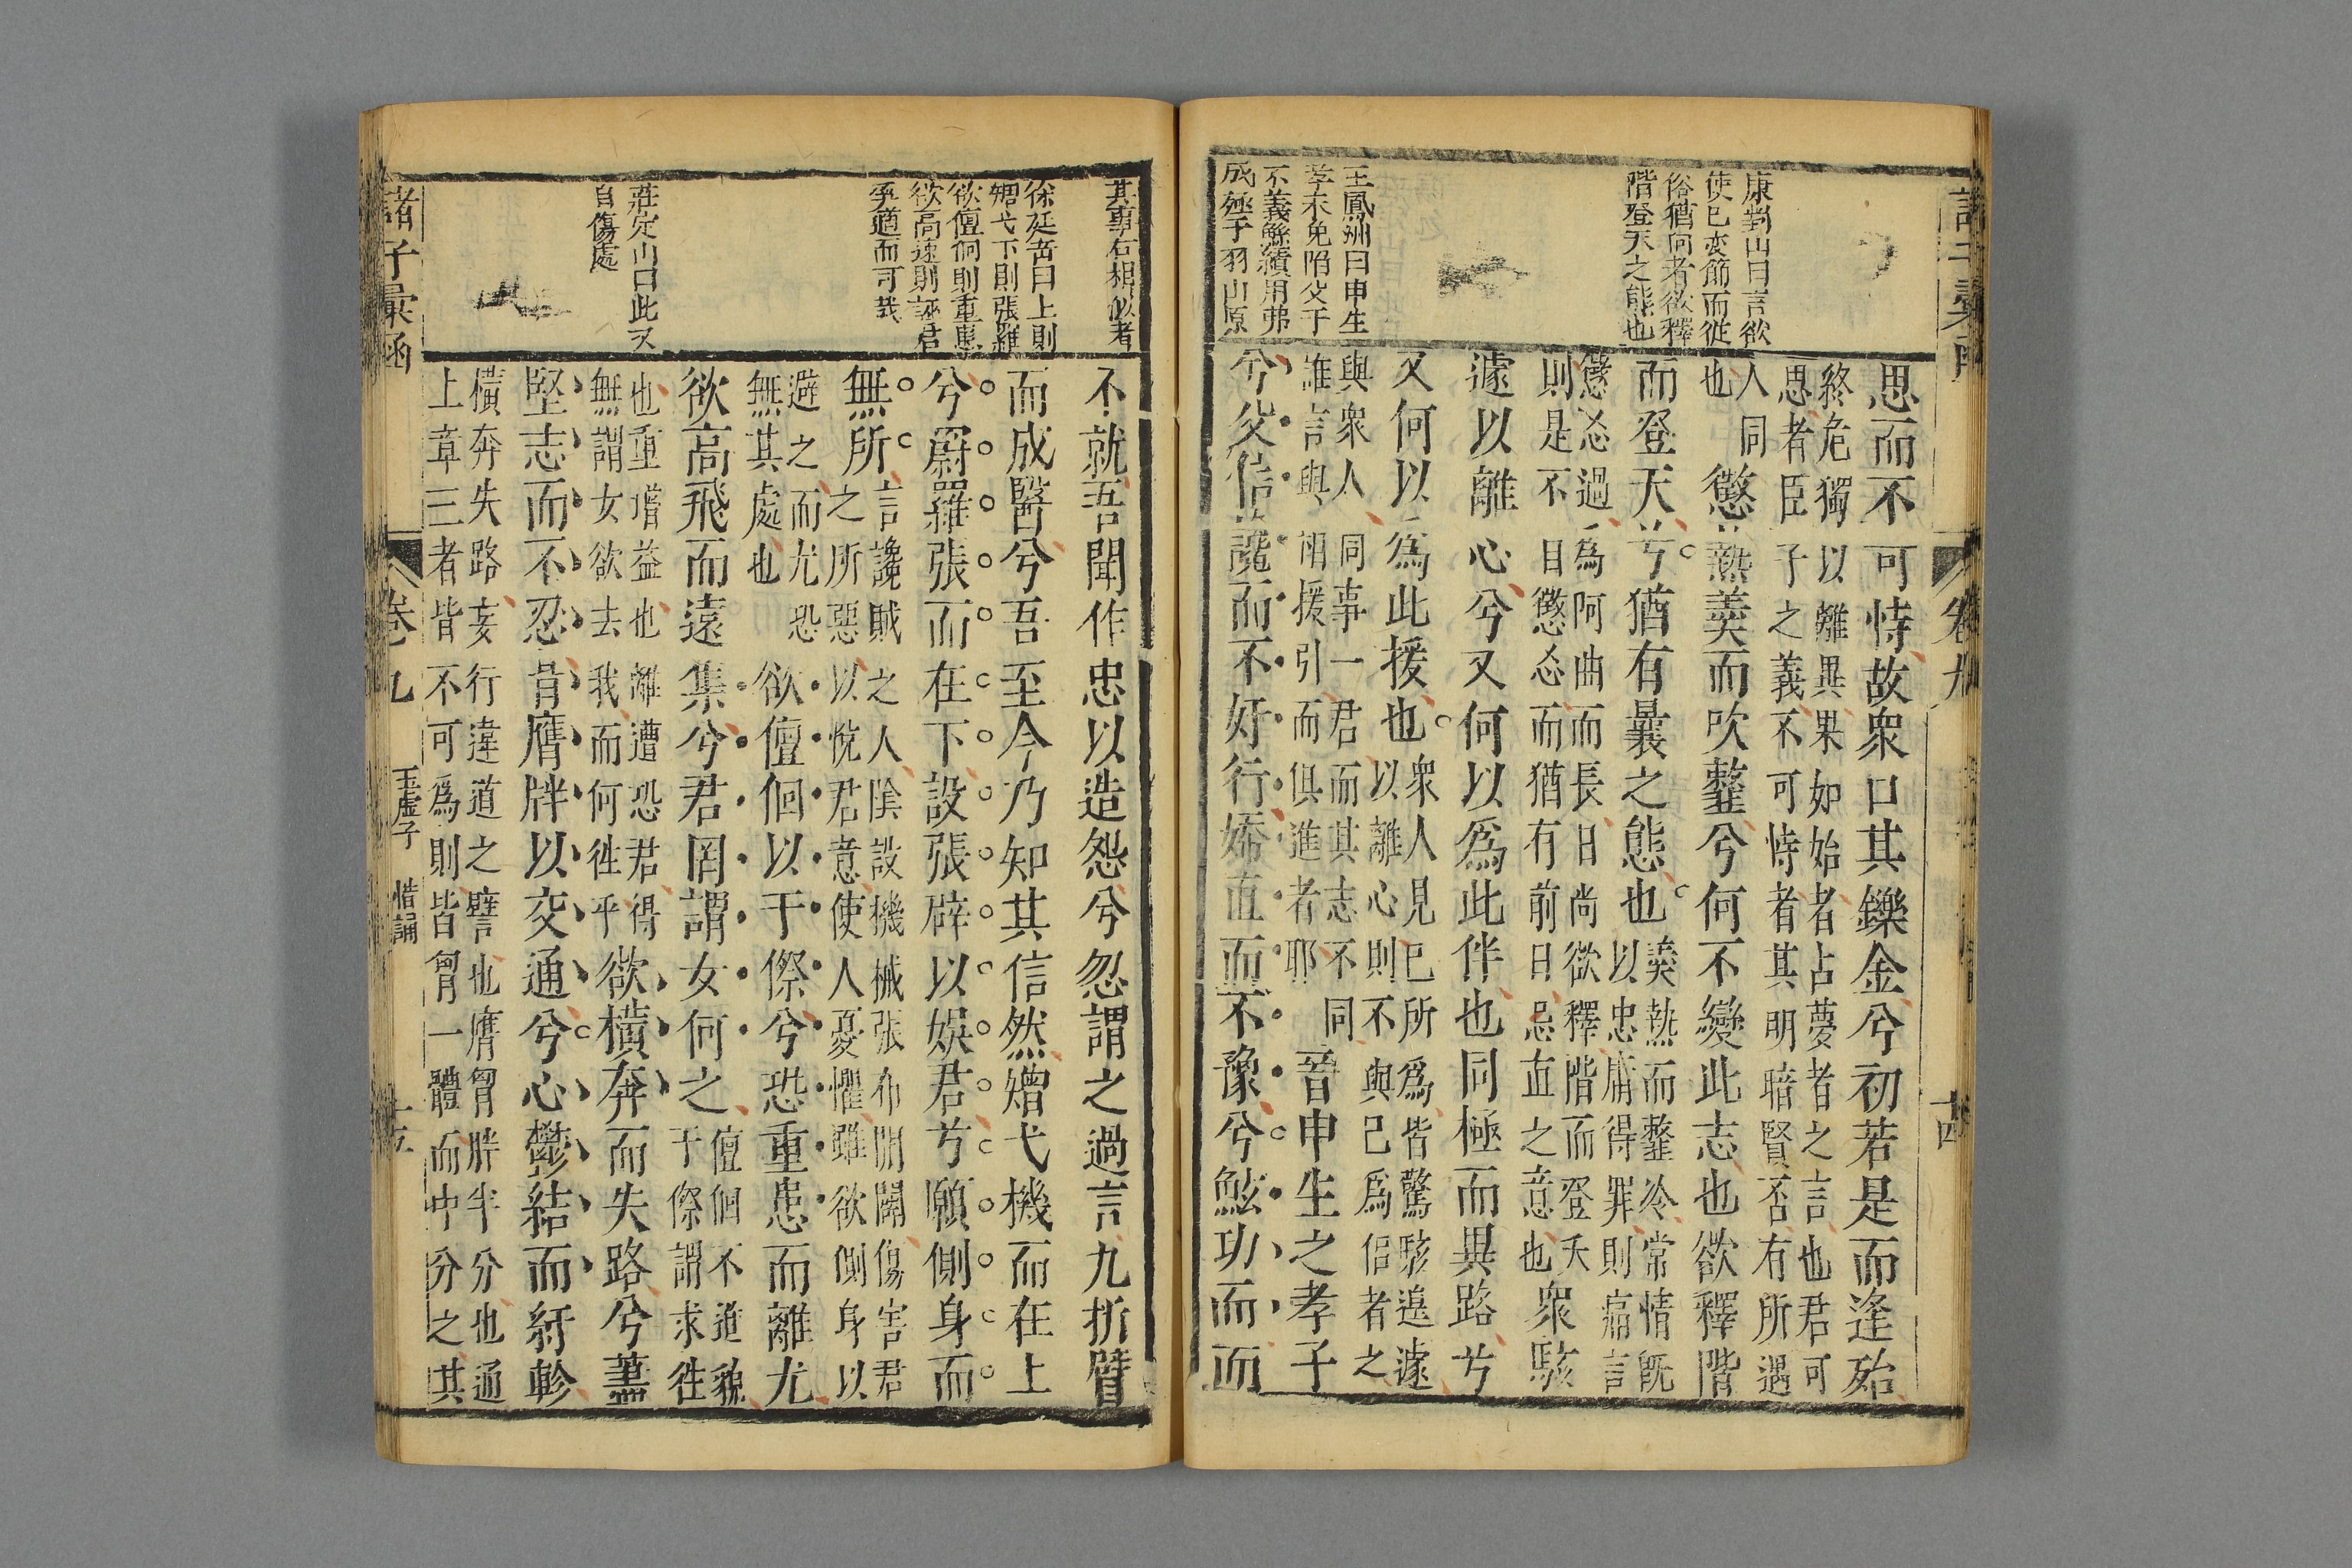 諸子彙函
卷九
廿四
康對山曰言欲
使已変節而從
俗猶向者欲釋
階登天之態也
王鳳洲曰申生
孝未免陷父于
不義鯀績用弗
成殛于羽山原
思而不可恃故衆口其鑠金兮初若是而逢殆
終危獨以離異果如始者占夢者之言也君可
思者臣子之義不可恃者其明暗賢否有所遇
人同
也
懲熱羹而吹虀兮何不變此志也欲釋階
而登天兮猶有曩之態也
羹熱而虀冷常情既
以忠庸得罪則痛言
懲忞過為阿曲而長日尚欲釋階而登天
則是不自懲忞而猶有前日忌直之意也
衆駭
遽以離心兮又何以為此伴也同極而異路兮
又何以為此援也
衆人見已所為皆驚駭遑遽
以離心則不與已為侶者之
與衆人同事一君而其志不同
誰言與相援引而俱進者耶
晉申生之孝子
兮父信讒而不好行婞直而不豫兮鮌功而而
其事石相似者
徐廷曰上則
矰弋下則張羅
欲儃佪則重患
欲高遠則誣君
爭適而可哉
莊定山曰此又
自傷處
不就吾聞作忠以造怨兮忽謂之過言九折臂
而成醫兮吾至今乃知其信然矰弋機而在上
兮罻羅張而在下設張辟以娛君兮願側身而
無所
言讒賊之人陰設機械張布開闢傷害君
之所惡以悅君意使人憂懼雖欲側身以
避之而尤恐
無其處也
欲儃佪以干傺兮恐重患而離尤
欲高飛而遠集兮君罔謂女何之
儃佪不進貌
干傺謂求徃
也重增益也離遭恐君得
無謂女欲去我而何徃乎
欲橫奔而失路兮蓋
堅志而不忍背膺牉以交通兮心鬱結而紆軫
橫奔失路妄行違道之譬也膺胷胖半分也通
上章三者皆不可為則皆胷一體而中分之其
諸子彙函
卷九
玉虛子
惜誦
十五